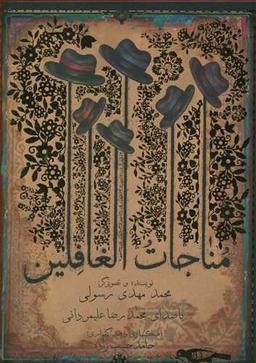 مناجات العافلین
نویسنده و تصویرگر:
محمد مهدی رسولی
با صدای محمد رضا علیمردانی